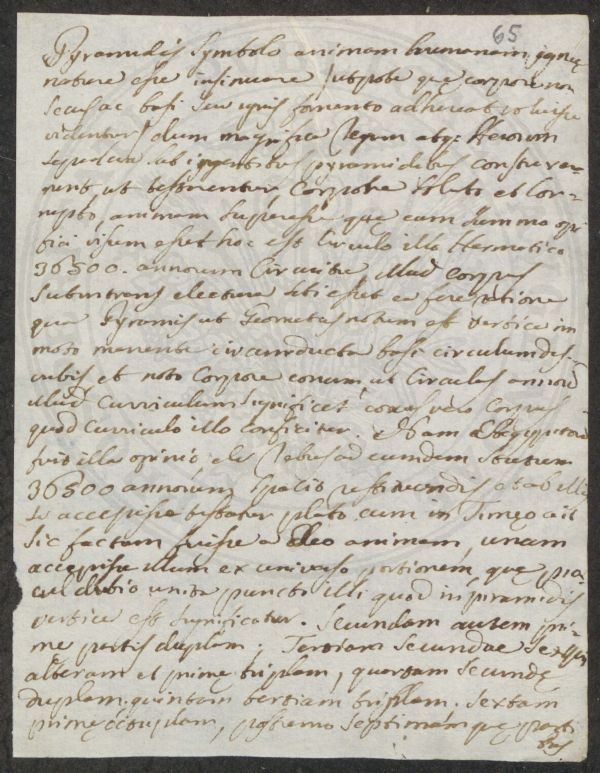 65
Pyramidis symbolo animam humanam igneę
naturę esse insinuare utpote quę corpore non
secus ac basi seu ignis fomento adhereat voluisse
videntur dum magnifica Regum atq: Heroum
sepulcra sub ingentibus pyramidibus construxe-
runt ut testarentur Corpore soluto et Cor-
rupto, animam superesse quę cum summo opi
fici visum esset hoc est Circulo illo Hermetico
36500. annorum Circuitu illud corpus
subintrans sibi esset ea fere ratione
qua Pyramis ut Geometras notum est vertice im
moto manente circumducta basi circulum des-
cribit et noto Corpore conum ut Circulus annorū
illud curriculum significet conus vero Corpus
quod curriculo illo conficitur. Nam Ębgyptiorū
fuit illa opinio de Rebus ad eumdem statum
36500 annorum spatio restituendis et ab illis
se accepisse testatur plato cum in Timęo ait
sic factam fuisse a Deo animam, unam
accepisse illum ex universo portionem quę pro-
cul dubio unita puncto illi quod in piramidis
vertice est significatur. Secundam autem pri-
mę partis duplam; Tertiam secundae sexqui
alteram et primę triplam, quartam secundę
duplam. quintam tertiam triplam. sextam
primę octuplam, postremo septimam quę parti
bus